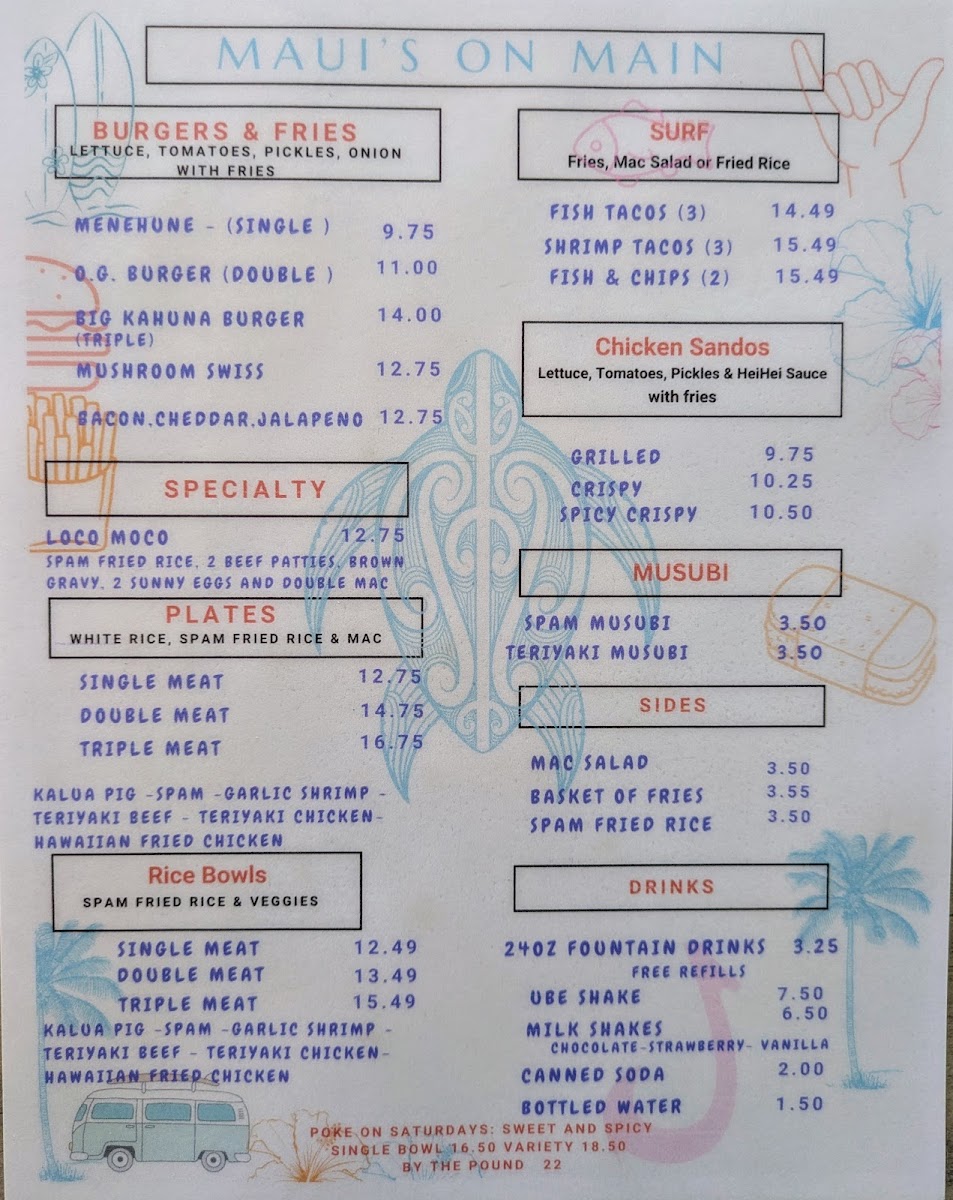 MAUI'S ON MAIN
BURGERS & FRIES
LETTUCE, TOMATOES, PICKLES, ONION
WITH FRIES
MENEHUNE - (SINGLE ) 9.75
O.G. BURGER (DOUBLE ) 11.00
BIG KAHUNA BURGER 14.00
(TRIPLE)
MUSHROOM SWISS 12.75
BACON.CHEDDAR.JALAPENO 12.75
SPECIALTY
LOCO MOCO 12.75
SPAM FRIED RICE, 2 BEEF PATTIES, BROWN
GRAVY, 2 SUNNY EGGS AND DOUBLE MAC
PLATES
WHITE RICE, SPAM FRIED RICE & MAC
SINGLE MEAT 12.75
DOUBLE MEAT 14.75
TRIPLE MEAT 16.75
KALUA PIG -SPAM -GARLIC SHRIMP -
TERIYAKI BEEF - TERIYAKI CHICKEN-
HAWAIIAN FRIED CHICKEN
Rice Bowls
SPAM FRIED RICE & VEGGIES
SINGLE MEAT 12.49
DOUBLE MEAT 13.49
TRIPLE MEAT 15.49
KALUA PIG -SPAM -GARLIC SHRIMP -
TERIYAKI BEEF - TERIYAKI CHICKEN-
HAWAIIAN FRIED CHICKEN
SURF
Fries, Mac Salad or Fried Rice
FISH TACOS (3) 14.49
SHRIMP TACOS (3) 15.49
FISH & CHIPS (2) 15.49
Chicken Sandos
Lettuce, Tomatoes, Pickles & HeiHei Sauce
with fries
GRILLED 9.75
CRISPY 10.25
SPICY CRISPY 10.50
MUSUBI
SPAM MUSUBI 3.50
TERIYAKI MUSUBI 3.50
SIDES
MAC SALAD 3.50
BASKET OF FRIES 3.55
SPAM FRIED RICE 3.50
DRINKS
24OZ FOUNTAIN DRINKS 3.25
FREE REFILLS
UBE SHAKE 7.50
MILK SHAKES 6.50
CHOCOLATE-STRAWBERRY- VANILLA
CANNED SODA 2.00
BOTTLED WATER 1.50
POKE ON SATURDAYS: SWEET AND SPICY
SINGLE BOWL 16.50 VARIETY 18.50
BY THE POUND 22